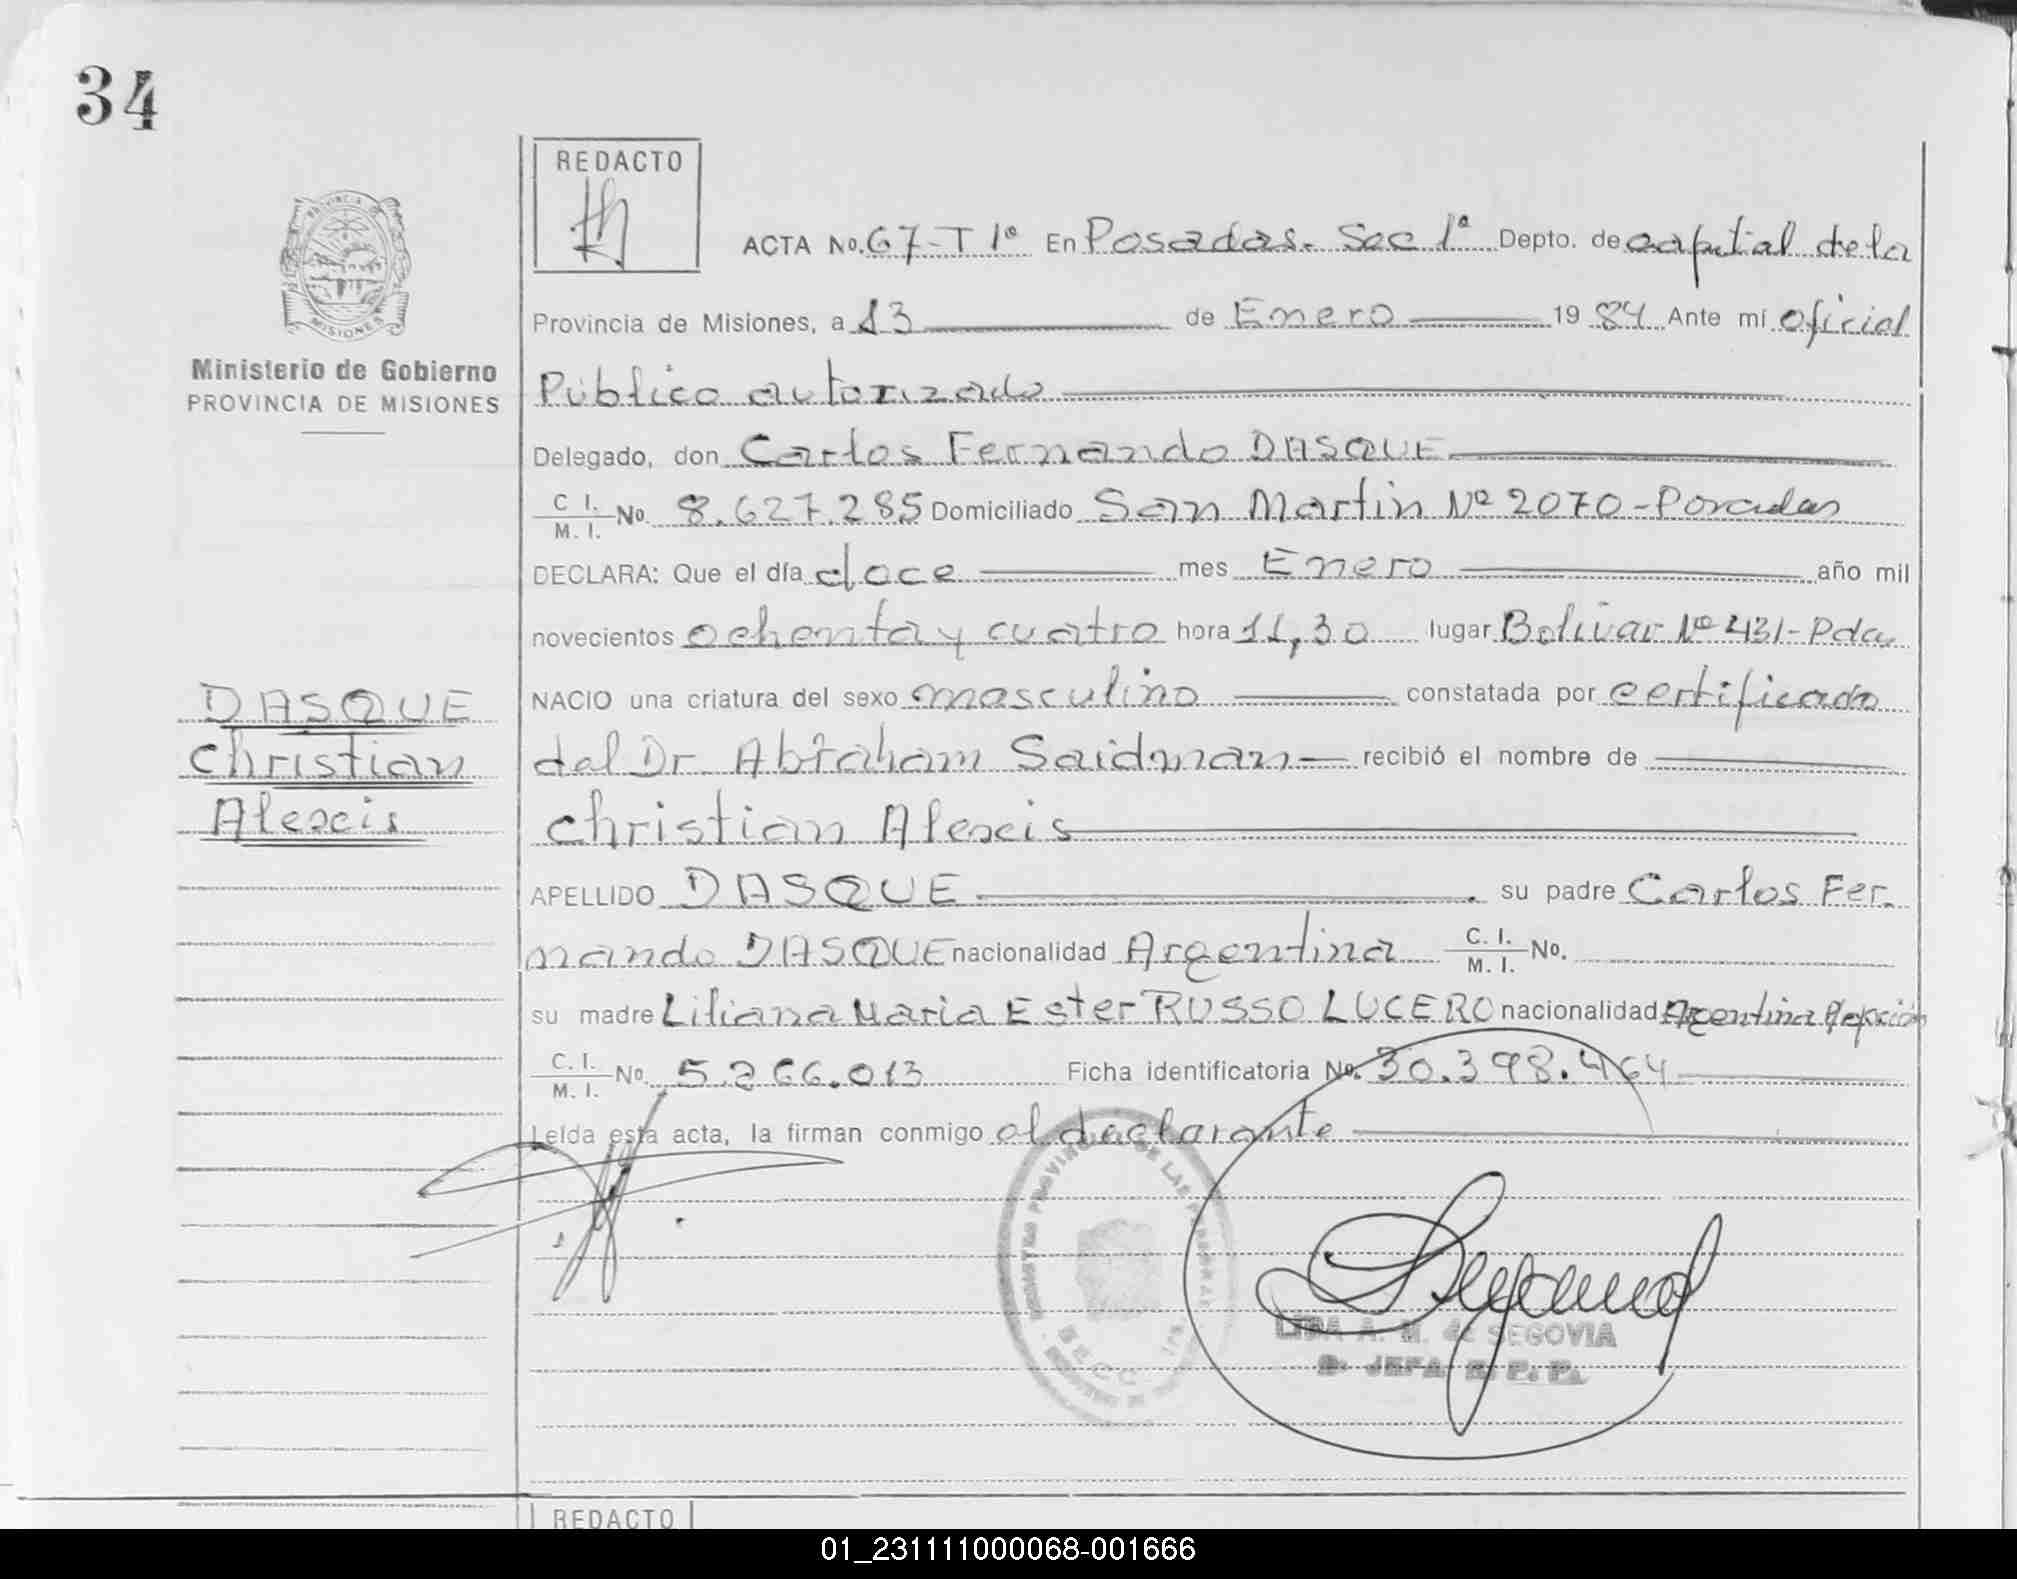 34
REDACTO
ACTA No. 67-T 1º En Posadas. Sec 1ª Depto. de capital de la
Provincia de Misiones, a 13 de Enero 1984 Ante mí oficial
Público autorizado
Delegado, don Carlos Fernando DASQUE
C. I. M. I. No. 8.627.285 Domiciliado San Martin Nº 2070-Posadas
DECLARA: Que el día doce mes Enero año mil
novecientos ochenta y cuatro hora 11,30 lugar Bolivar Nº 431-Pdas
NACIO una criatura del sexo masculino constatada por certificado
del Dr. Abraham Saidman recibió el nombre de
Christian Alexis
APELLIDO DASQUE su padre Carlos Fer-
nando DASQUE nacionalidad Argentina C. I. M. I. No.
su madre Liliana Maria Ester RUSSO LUCERO nacionalidad Argentina
C. I. M. I. No. 5.266.013 Ficha identificatoria No. 30.398.464
Leída esta acta, la firman conmigo el declarante
PROVINCIA
MISIONES
Ministerio de Gobierno
PROVINCIA DE MISIONES
DASQUE
Christian
Alexis
REGISTRO PROVINCIAL DE LAS PERSONAS
A. M. de SEGOVIA
JEFA
R. P. P.
REDACTO
01_231111000068-001666